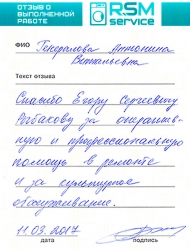 ОТЗЫВ О
ВЫПОЛНЕННОЙ
РАБОТЕ
RSM
service
ФИО Генералова Антонина
Витальевна
Текст отзыва
Спасибо Егору Сергеевичу
за оператив-
ную и профессиональную
помощь в ремонте
и за культурное
обслуживание.
11.09.2017
дата подпись